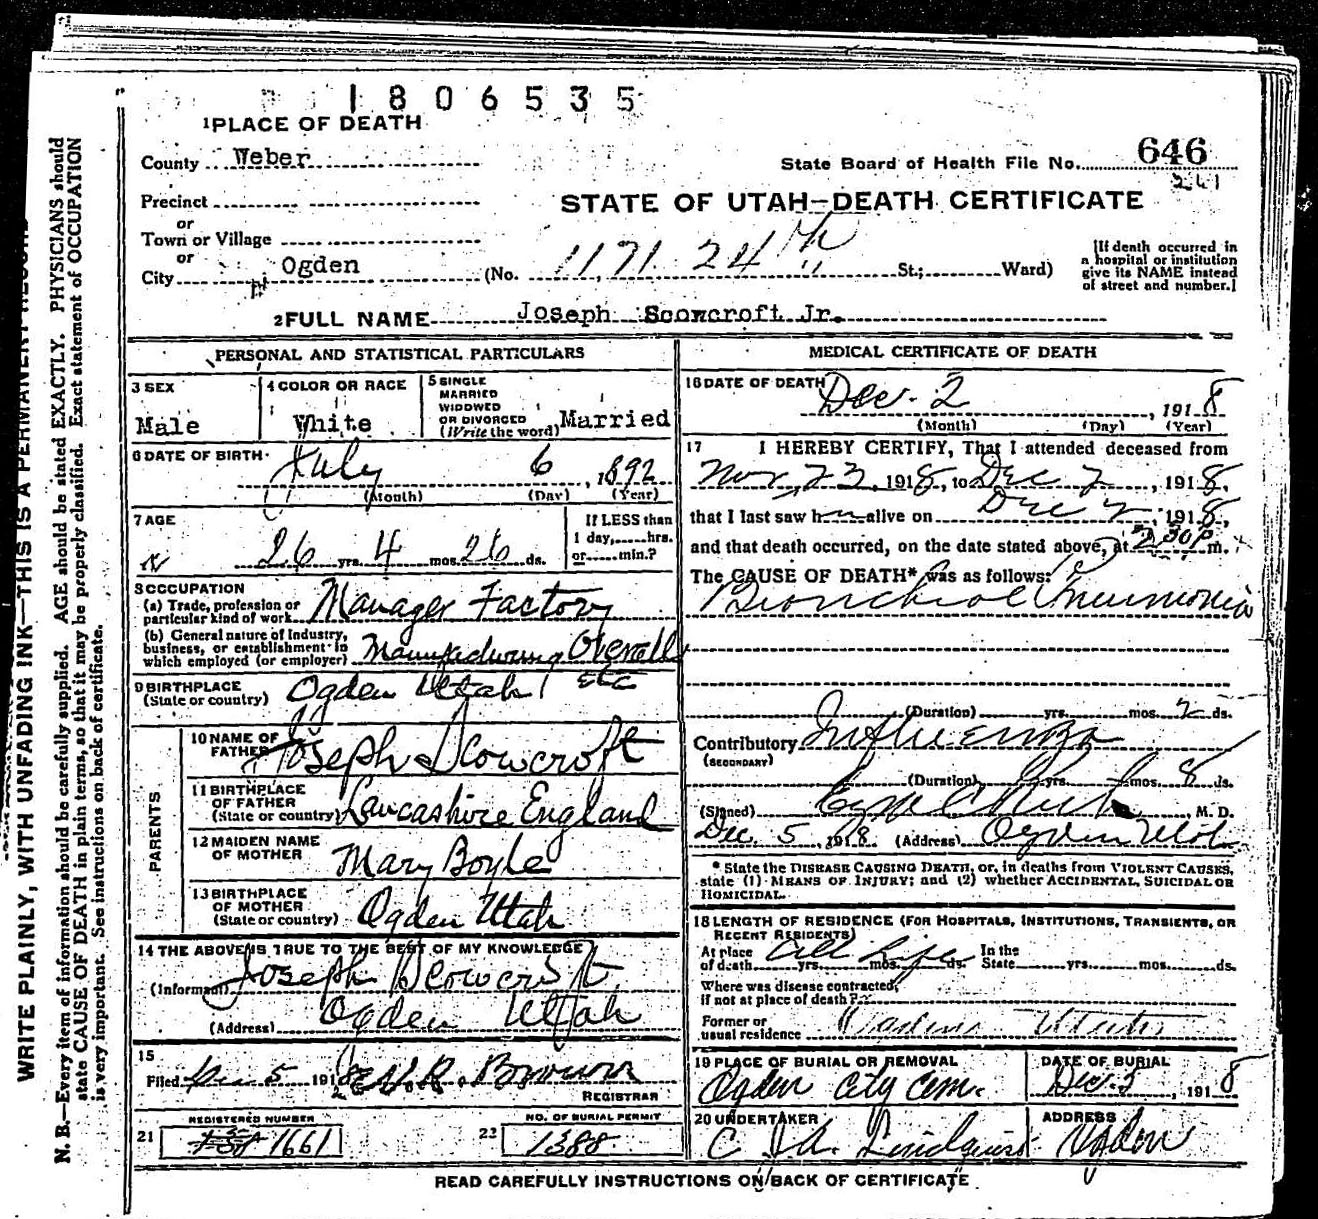 1806535
1 PLACE OF DEATH
County Weber
State Board of Health File No. 646
261
Precinct
or
Town or Village
or
City Ogden (No. 1171 24th St.; Ward)
STATE OF UTAH—DEATH CERTIFICATE
[If death occurred in
a hospital or institution
give its NAME instead
of street and number.]
2 FULL NAME Joseph Scowcroft Jr.
PERSONAL AND STATISTICAL PARTICULARS
3 SEX
Male
4 COLOR OR RACE
White
5 SINGLE
MARRIED
WIDOWED
OR DIVORCED
(Write the word) Married
6 DATE OF BIRTH
July 6, 1892
(Month) (Day) (Year)
7 AGE
26 yrs. 4 mos. 26 ds.
If LESS than
1 day,.....hrs.
or.....min.?
8 OCCUPATION
(a) Trade, profession or
particular kind of work Manager Factory
(b) General nature of Industry,
business, or establishment in
which employed (or employer) Manufacturing Overalls
etc
9 BIRTHPLACE
(State or country) Ogden Utah
PARENTS
10 NAME OF
FATHER Joseph Scowcroft
11 BIRTHPLACE
OF FATHER
(State or country) Lancashire England
12 MAIDEN NAME
OF MOTHER Mary Boyle
13 BIRTHPLACE
OF MOTHER
(State or country) Ogden Utah
14 THE ABOVE IS TRUE TO THE BEST OF MY KNOWLEDGE
(Informant) Joseph Scowcroft
(Address) Ogden Utah
15
Filed Dec 5 1918 Brown
REGISTRAR
REGISTERED NUMBER
21 1661
NO. OF BURIAL PERMIT
22 1388
MEDICAL CERTIFICATE OF DEATH
16 DATE OF DEATH Dec. 2, 1918
(Month) (Day) (Year)
17 I HEREBY CERTIFY, That I attended deceased from
Nov 23, 1918, to Dec 2, 1918,
that I last saw h im alive on Dec 2, 1918,
and that death occurred, on the date stated above, at 2 30 P m.
The CAUSE OF DEATH* was as follows:
Bronchial Pneumonia
(Duration) yrs. mos. 2 ds.
Contributory Influenza
(SECONDARY)
(Duration) yrs. mos. 8 ds.
(Signed) M. D.
Dec. 5, 1918 (Address) Ogden Utah
* State the DISEASE CAUSING DEATH, or, in deaths from VIOLENT CAUSES,
state (1) MEANS OF INJURY; and (2) whether ACCIDENTAL, SUICIDAL OR
HOMICIDAL.
18 LENGTH OF RESIDENCE (FOR HOSPITALS, INSTITUTIONS, TRANSIENTS, OR
RECENT RESIDENTS)
At place
of death yrs. mos. ds. All Life In the
State yrs. mos. ds.
Where was disease contracted,
if not at place of death?
Former or
usual residence Utah
19 PLACE OF BURIAL OR REMOVAL
Ogden City Cem.
DATE OF BURIAL
Dec. 5, 1918
20 UNDERTAKER
C. A. Lindquist
ADDRESS
Ogden
READ CAREFULLY INSTRUCTIONS ON BACK OF CERTIFICATE
WRITE PLAINLY, WITH UNFADING INK—THIS IS A PERMANENT RECORD
N. B.—Every item of information should be carefully supplied. AGE should be stated EXACTLY. PHYSICIANS should
state CAUSE OF DEATH in plain terms, so that it may be properly classified. Exact statement of OCCUPATION
is very important. See instructions on back of certificate.